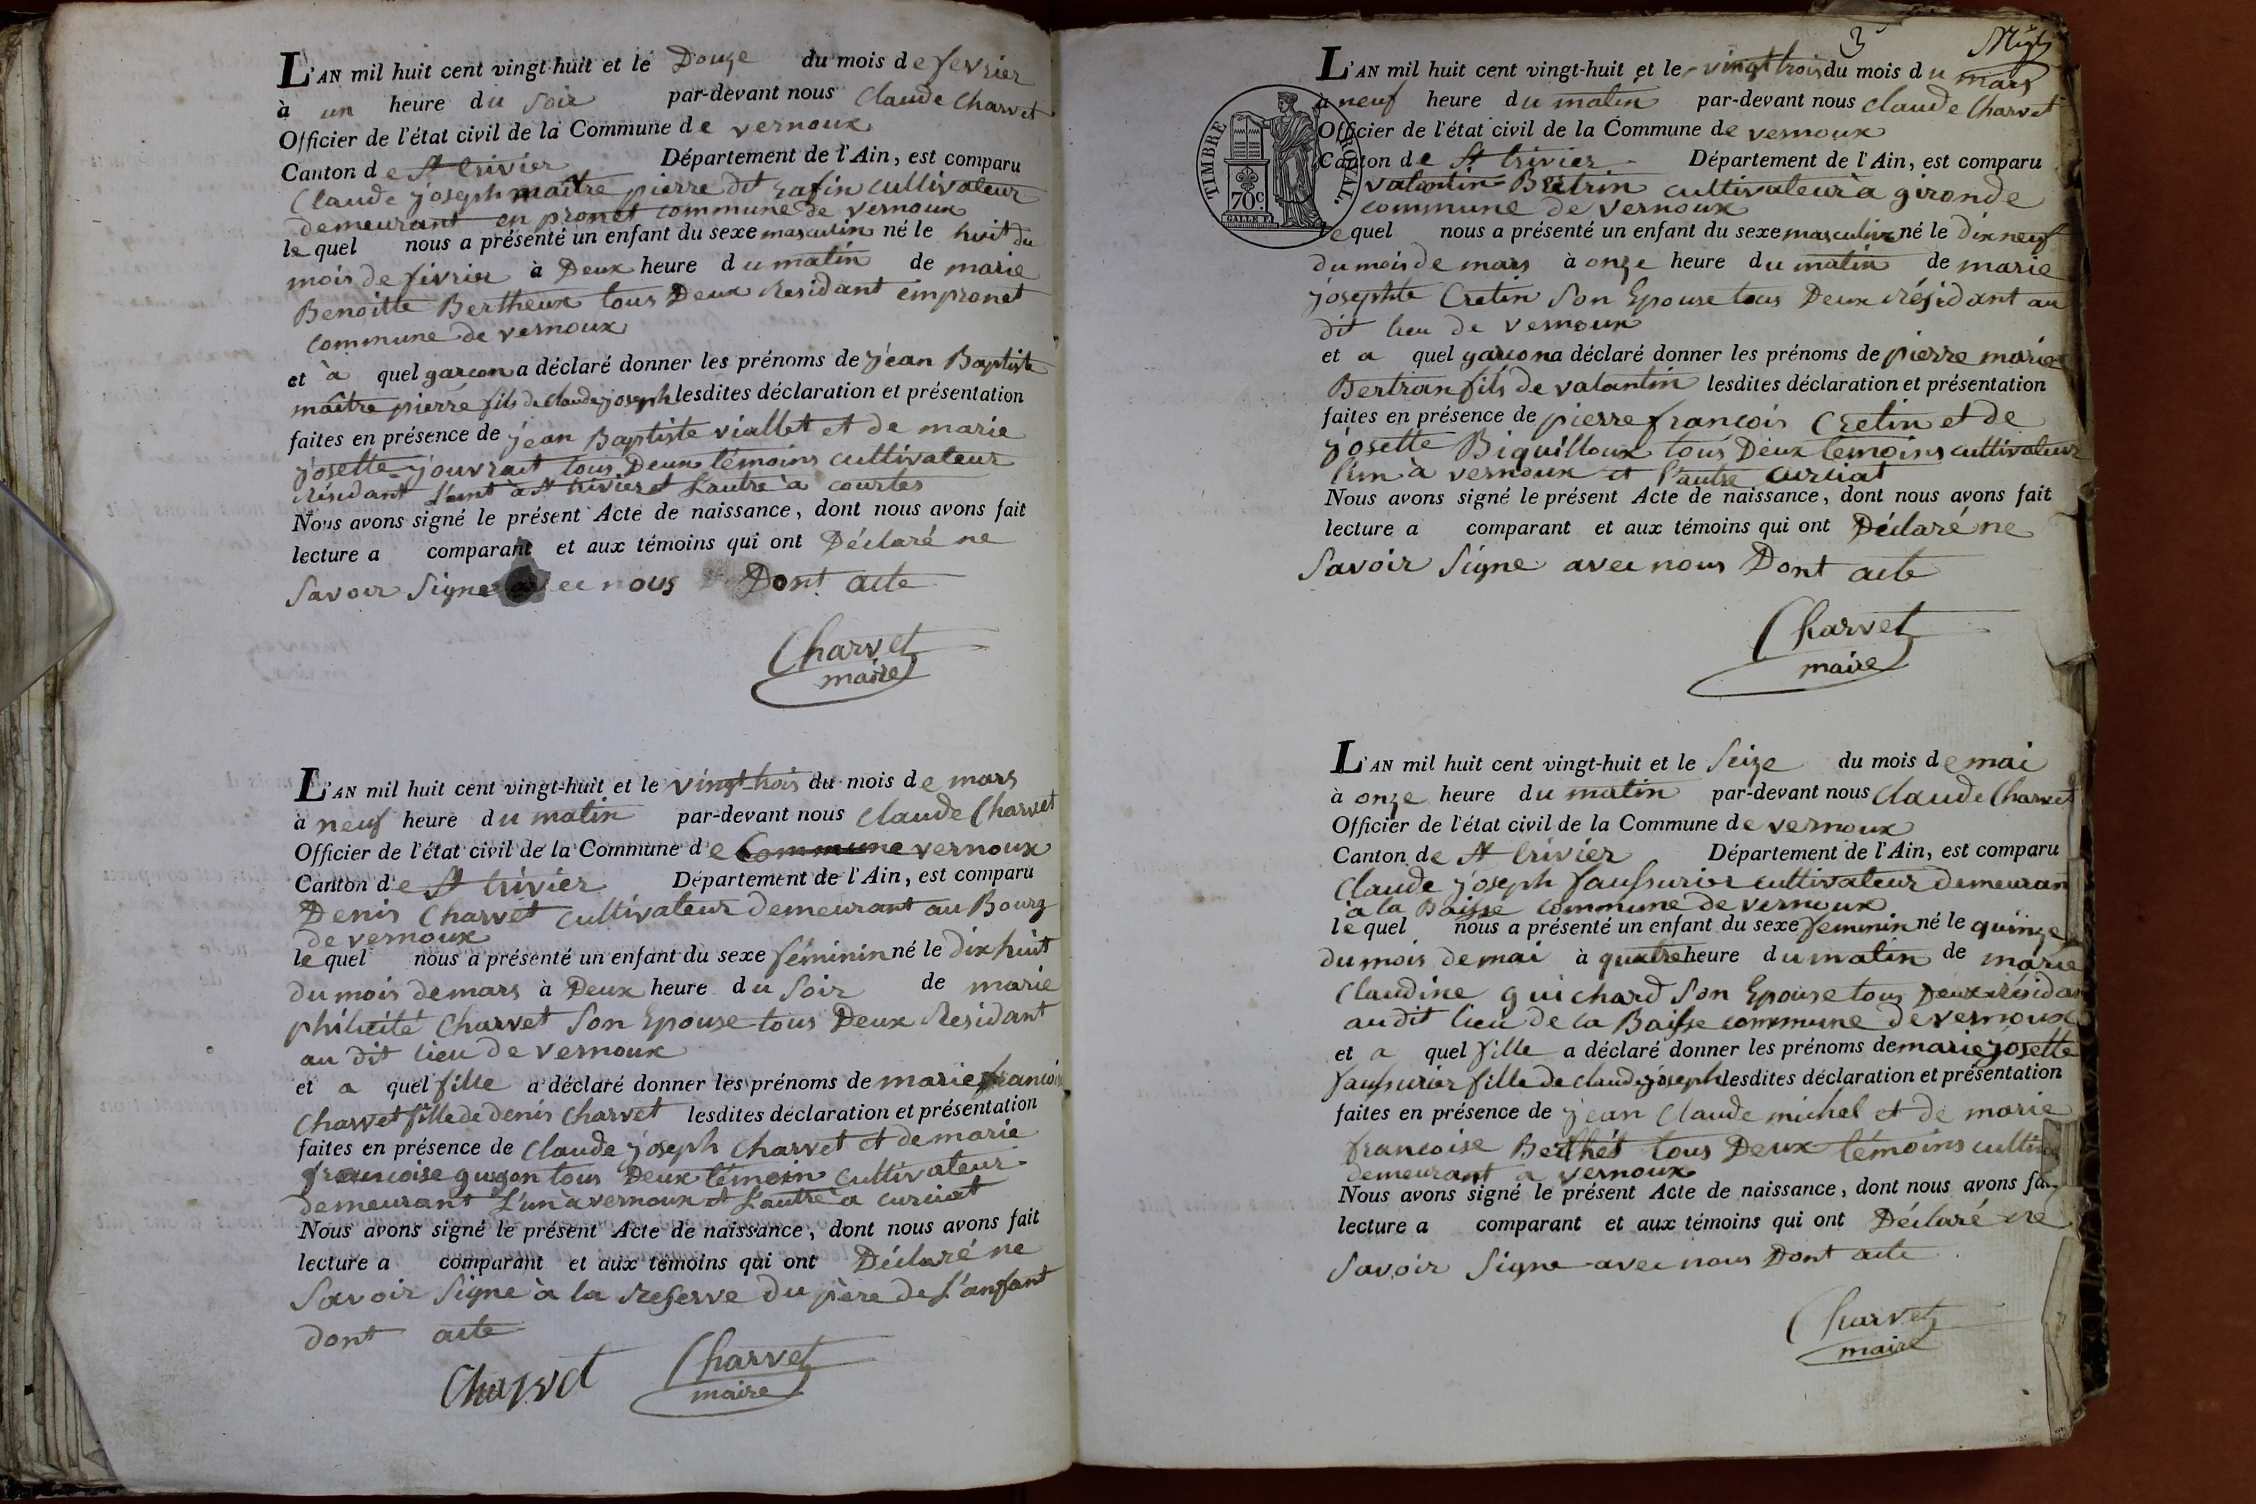 L'AN mil huit cent vingt-huit et le Douze du mois de fevrier
à un heure du Soir par-devant nous Claude Charvet
Officier de l'état civil de la Commune de vernoux
Canton de St trivier Département de l'Ain, est comparu
Claude joseph maître pierre dit gafin cultivateur
demeurant en pronet commune de vernoux
le quel nous a présenté un enfant du sexe masculin né le huit du
mois de fivrier à Deux heure du matin de marie
Benoitte Bertheux tous Deux residant empronet
commune de vernoux
et à quel garcon a déclaré donner les prénoms de jean Baptiste
maître pierre fils de claude joseph lesdites déclaration et présentation
faites en présence de jean Baptiste viallet et de marie
josette jouvrait tous Deux témoins cultivateur
résidant L'unt à St trivier et L'autre à courtes
Nous avons signé le présent Acte de naissance, dont nous avons fait
lecture a comparant et aux témoins qui ont Déclaré ne
Savoir Signe avec nous Dont acte
Charvet
maire
L'AN mil huit cent vingt-huit et le vingt-trois du mois de mars
à neuf heure du matin par-devant nous Claude Charvet
Officier de l'état civil de la Commune de Commune vernoux
Canton de St trivier Département de l'Ain, est comparu
Denis Charvet cultivateur demeurant au Bourg
de vernoux
le quel nous a présenté un enfant du sexe féminin né le dix huit
du mois de mars à Deux heure du Soir de marie
philicité Charvet Son Epouse tous Deux Residant
au dit lieu de vernoux
et a quel fille a déclaré donner les prénoms de marie francoi
Charvet fille de denis Charvet lesdites déclaration et présentation
faites en présence de Claude joseph Charvet et de marie
francoise guyon tous Deux témoin cultivateur
demeurant L'un à vernoux et L'autre à curciat
Nous avons signé le présent Acte de naissance, dont nous avons fait
lecture a comparant et aux témoins qui ont Déclaré ne
Savoir Signe à la reserve du père de L'anfant
dont acte
Charvet Charvet
maire
3
L'AN mil huit cent vingt-huit et le vingt trois du mois du mars
à neuf heure du matin par-devant nous Claude Charvet
Officier de l'état civil de la Commune de vernoux
Canton de St trivier Département de l'Ain, est comparu
valantin Bertrin cultivateur à gironde
commune de vernoux
TIMBRE ROYAL.
70c.
le quel nous a présenté un enfant du sexe masculin né le dix neuf
du mois de mars à onze heure du matin de marie
josephte Cretin Son Epouse tous Deux résidant au
dit lieu de vernoux
et a quel garcon a déclaré donner les prénoms de pierre marie
Bertran fils de valantin lesdites déclaration et présentation
faites en présence de pierre francois Cretin et de
josette Biquilloux tous Deux temoins cultivateur
l'un à vernoux et l'autre curciat
Nous avons signé le présent Acte de naissance, dont nous avons fait
lecture a comparant et aux témoins qui ont Déclaré ne
Savoir Signe avec nous Dont acte
Charvet
maire
L'AN mil huit cent vingt-huit et le Seize du mois de mai
à onze heure du matin par-devant nous Claude Charvet
Officier de l'état civil de la Commune de vernoux
Canton de St trivier Département de l'Ain, est comparu
Claude joseph faussurier cultivateur demeuran
à la Baisse commune de vernoux
le quel nous a présenté un enfant du sexe feminin né le quinze
du mois de mai à quatre heure du matin de marie
Claudine guichard Son Epouse tous Deux résidan
au dit lieu de la Baisse commune de vernoux
et a quel fille a déclaré donner les prénoms de marie josette
faussurier fille de claude joseph lesdites déclaration et présentation
faites en présence de jean Claude michel et de marie
francoise Berthet tous Deux témoins cultiv
demeurant a vernoux
Nous avons signé le présent Acte de naissance, dont nous avons fai
lecture a comparant et aux témoins qui ont Déclaré ne
Savoir Signe avec nous Dont acte
Charvet
maire